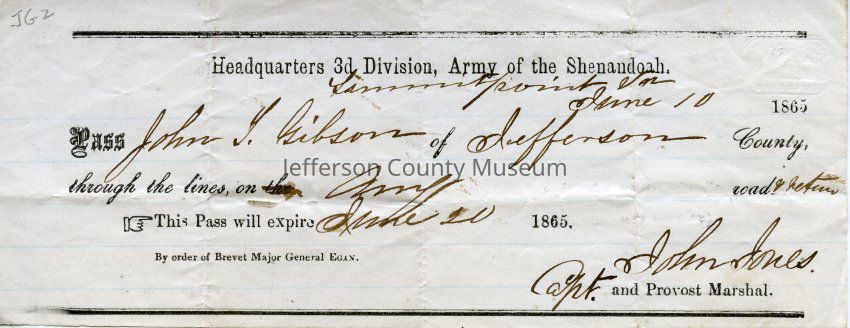 JG2
Headquarters 3d Division, Army of the Shenandoah.
Summitpoint Va
June 10 1865
Pass John T. Gibson of Jefferson County,
Jefferson County Museum
through the lines, on the Any road & return
This Pass will expire June 20 1865.
By order of Brevet Major General EGAN.
John Jones.
Capt. and Provost Marshal.